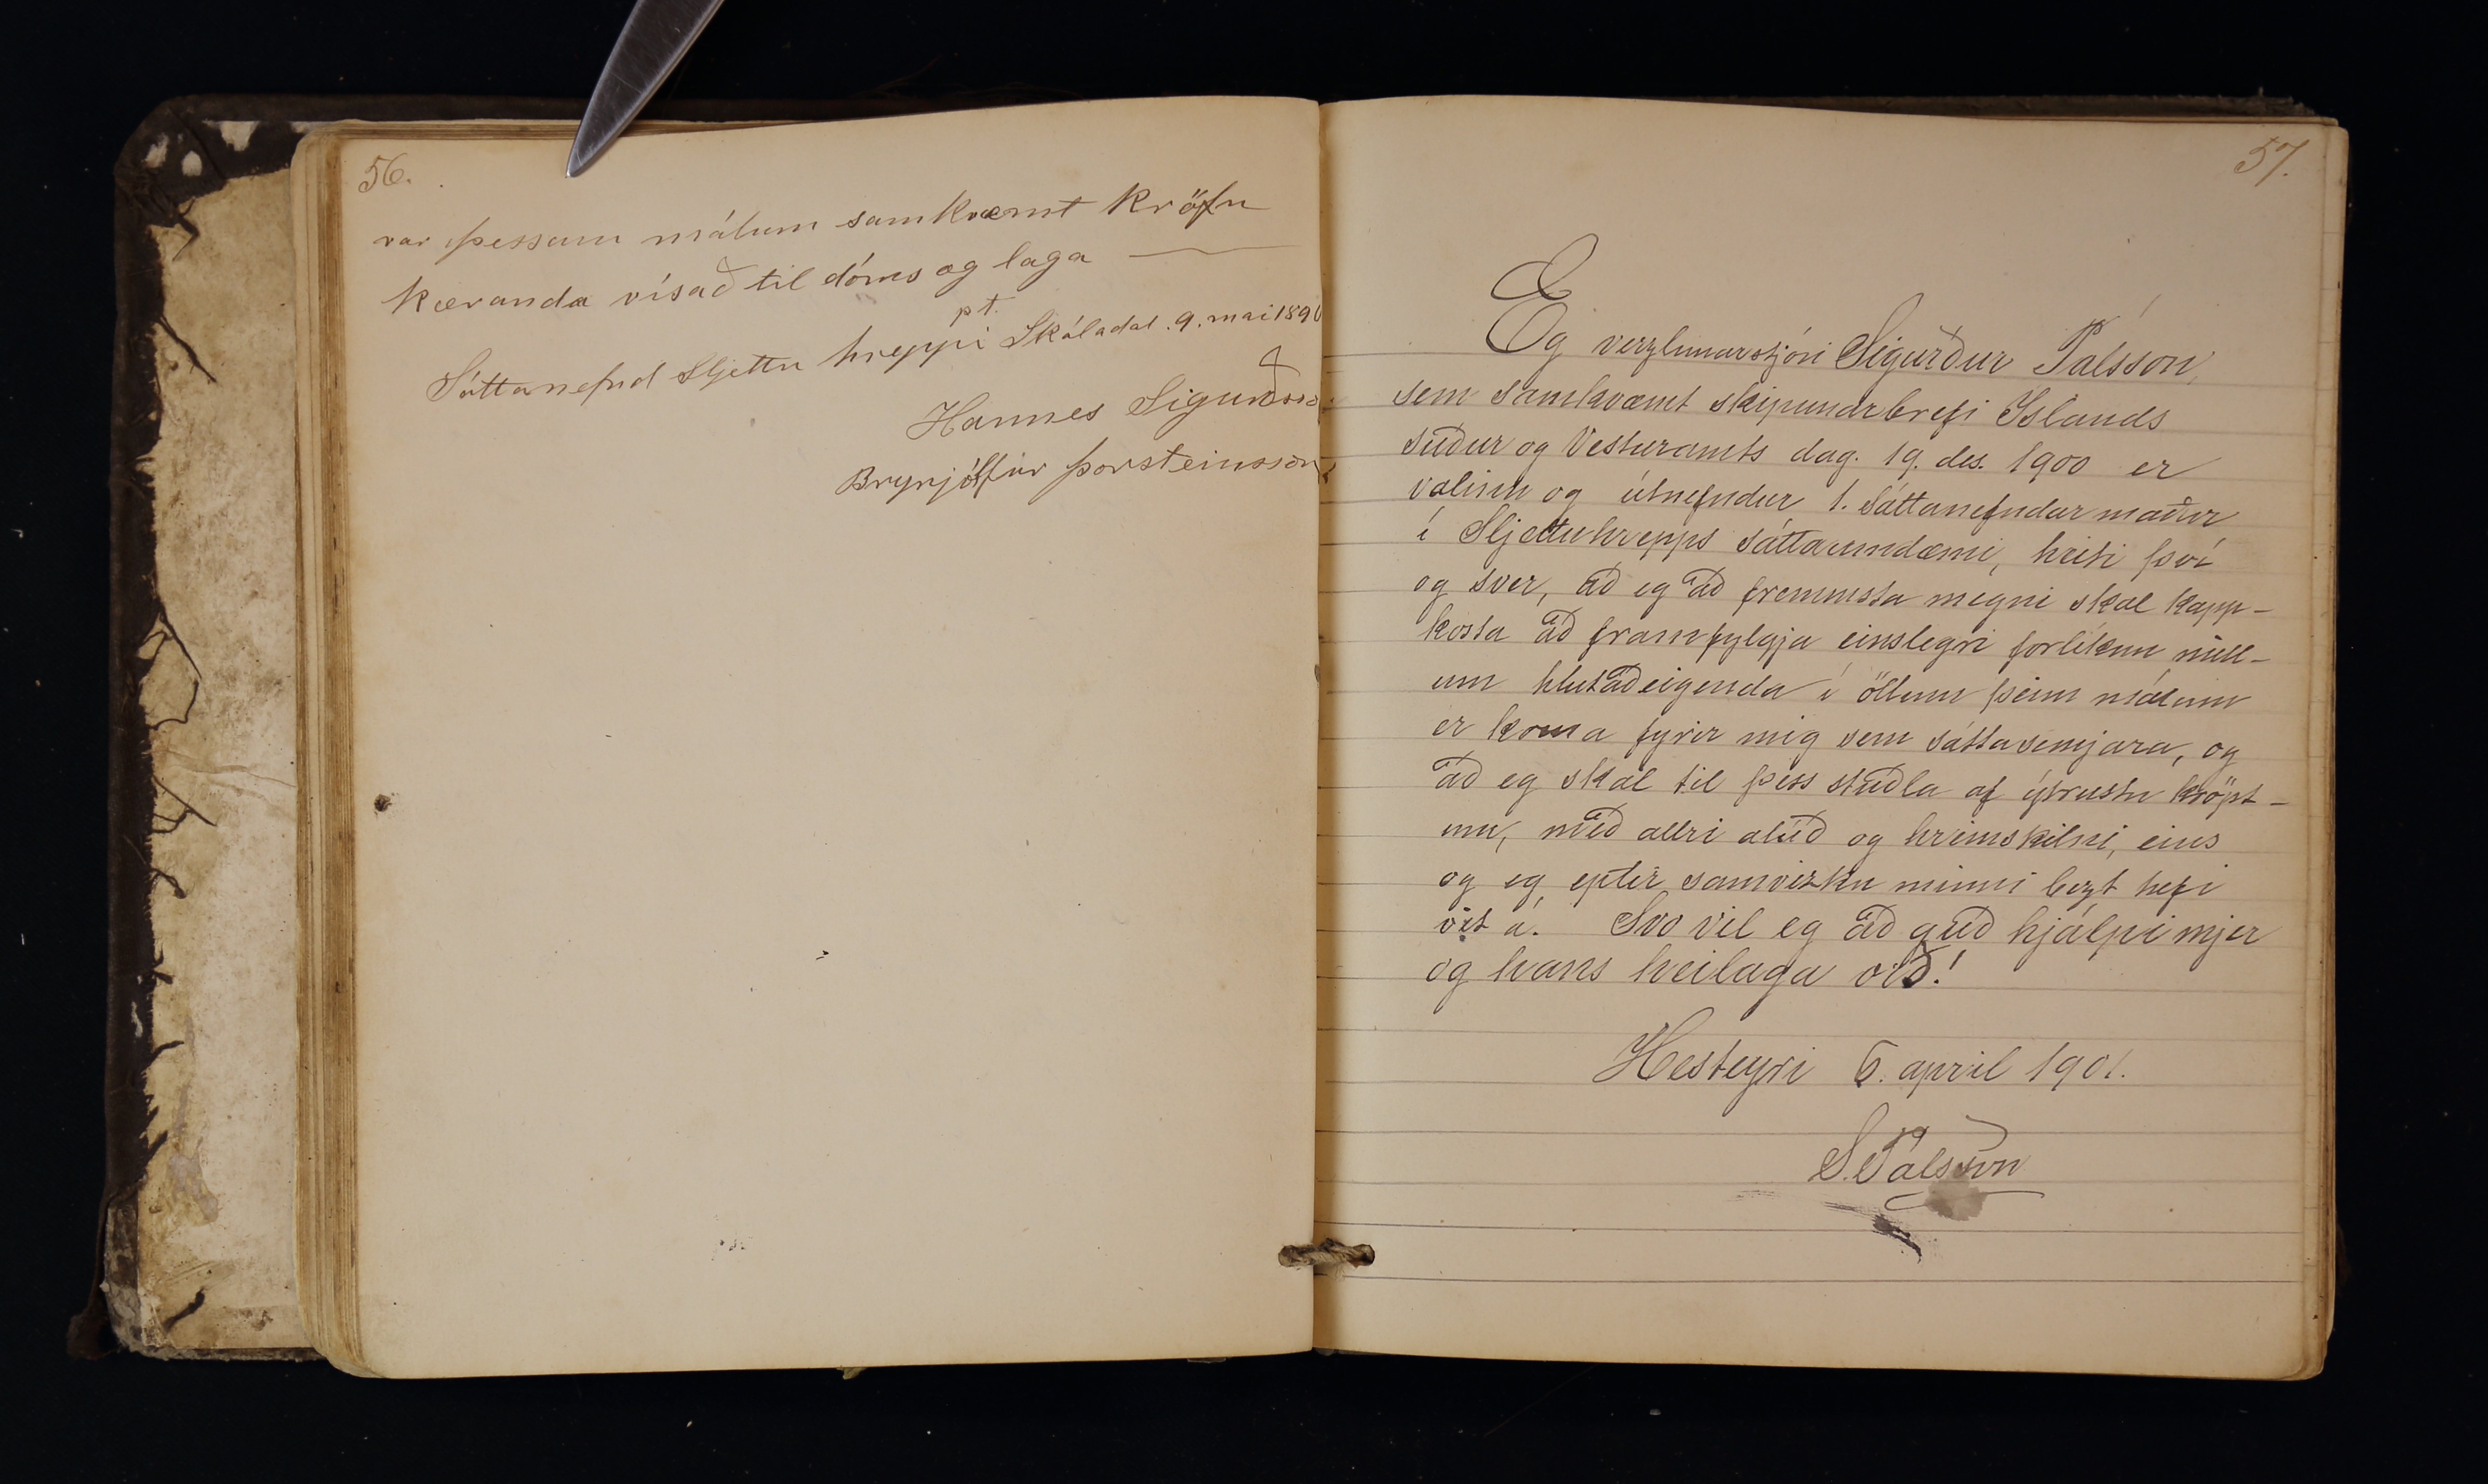 56.
var þessum málum samkvæmt kröfu
kæranda vísað til dóms og laga
pt.
Sáttanefnd Sljettu hreppi Skáladal. 9. mai 189
Hannes Sigurðsso
Brynjólfur Þorsteinsson
57.
Eg verzlunarstjóri Sigurður Pálsson,
sem samkvæmt skipunarbrefi Íslands
suður og Vesturamts dag. 19. des. 1900 er
valinn og útnefndur 1. sáttanefndar maður
í Sljettuhrepps sáttaumdæmi, heiti því
og sver, að eg að fremmsta megni skal kapp-
kosta að framfylgja einslegri forlíkun mill-
um hlutaðeigenda í öllum þeim málum
er koma fyrir mig sem sáttasemjara, og
að eg skal til þess stuðla af ýtrustu kröpt-
um, með allri alúð og hreinskilni, eins
og eg, eptir samvizku minni bezt hefi
vit á. Svo vil eg að guð hjálpi mjer
og hans heilaga orð!
Hesteyri 6. april 1901.
S. Pálsson